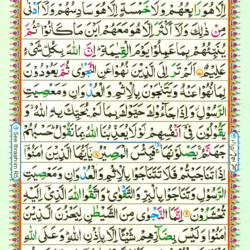 اِلَّا هُوَ رَابِعُهُمْ وَلَا خَمْسَةٍ اِلَّا هُوَ سَادِسُهُمْ وَلَآ اَدْنٰى
مِنْ ذٰلِكَ وَلَآ اَكْثَرَ اِلَّا هُوَ مَعَهُمْ اَيْنَ مَا كَانُوْا ۚ ثُمَّ
يُنَبِّئُهُمْ بِمَا عَمِلُوْا يَوْمَ الْقِيٰمَةِ ؕ اِنَّ اللّٰهَ بِكُلِّ شَىْءٍ
عَلِيْمٌ اَلَمْ تَرَ اِلَى الَّذِيْنَ نُهُوْا عَنِ النَّجْوٰى ثُمَّ يَعُوْدُوْنَ
لِمَا نُهُوْا عَنْهُ وَيَتَنٰجَوْنَ بِالْاِثْمِ وَالْعُدْوَانِ وَمَعْصِيَتِ
الرَّسُوْلِ وَاِذَا جَآءُوْكَ حَيَّوْكَ بِمَا لَمْ يُحَيِّكَ بِهِ اللّٰهُ وَ
يَقُوْلُوْنَ فِىْٓ اَنْفُسِهِمْ لَوْلَا يُعَذِّبُنَا اللّٰهُ بِمَا نَقُوْلُ ؕ حَسْبُهُمْ
جَهَنَّمُ ۚ يَصْلَوْنَهَا ۚ فَبِئْسَ الْمَصِيْرُ يٰٓاَيُّهَا الَّذِيْنَ اٰمَنُوْٓا
اِذَا تَنَاجَيْتُمْ فَلَا تَتَنَاجَوْا بِالْاِثْمِ وَالْعُدْوَانِ وَمَعْصِيَتِ
الرَّسُوْلِ وَتَنَاجَوْا بِالْبِرِّ وَالتَّقْوٰى ؕ وَاتَّقُوا اللّٰهَ الَّذِىْٓ اِلَيْهِ
تُحْشَرُوْنَ اِنَّمَا النَّجْوٰى مِنَ الشَّيْطٰنِ لِيَحْزُنَ الَّذِيْنَ
اٰمَنُوْا وَلَيْسَ بِضَآرِّهِمْ شَيْئًا اِلَّا بِاِذْنِ اللّٰهِ ؕ وَعَلَى اللّٰهِ